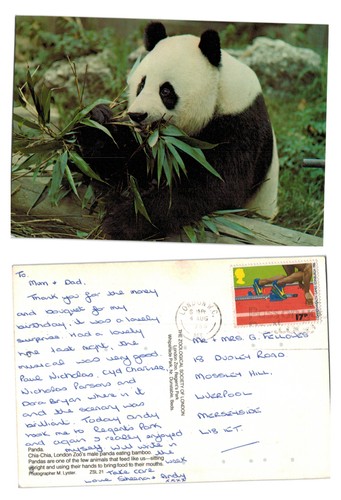 To.
Mom + Dad.
Thank you for the money
and bouquet for my
birthday. it was a lovely
surprise. Had a lovely
time last night, the
musical was very good.
Paul Nicholas, Cyd Charisse,
Nicholas Parsons and
Dora Bryan where in it
and the scenary was
brilliant. Today Andy
took me to Regents Park
and again I really enjoyed
myself will write in the week
Take care
Love Andy
xxxx
Panda
Chia-Chia, London Zoo's male panda eating bamboo.
Pandas are one of the few animals that feed like us—sitting
upright and using their hands to bring food to their mouths.
Photographer M. Lyster. ZSL 21
THE ZOOLOGICAL SOCIETY OF LONDON
London Zoo, Regent's Park
Whipsnade Park, Nr. Dunstable, Beds
LONDON
AUG
17p
MR + MRS. G. FELLOWES
18 DUDLEY ROAD
MOSSLEY HILL,
LIVERPOOL
MERSEYSIDE
L18 1ET.